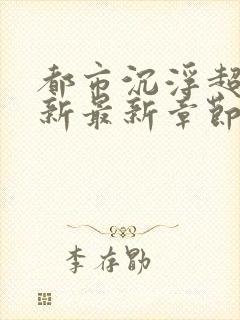 都市沉浮超
新最新章节
李存勖